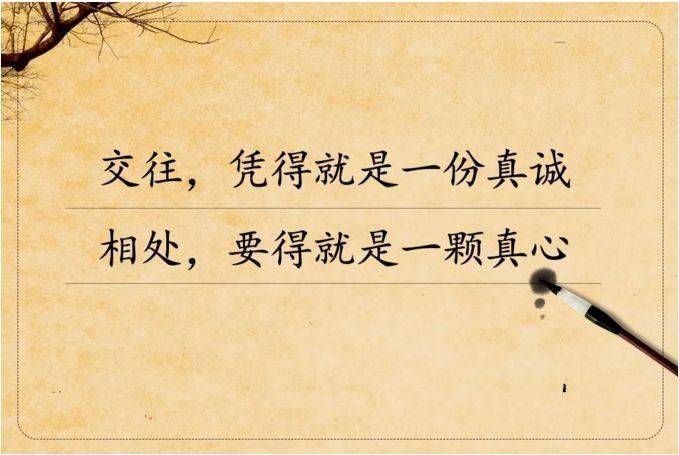 交往，凭得就是一份真诚
相处，要得就是一颗真心